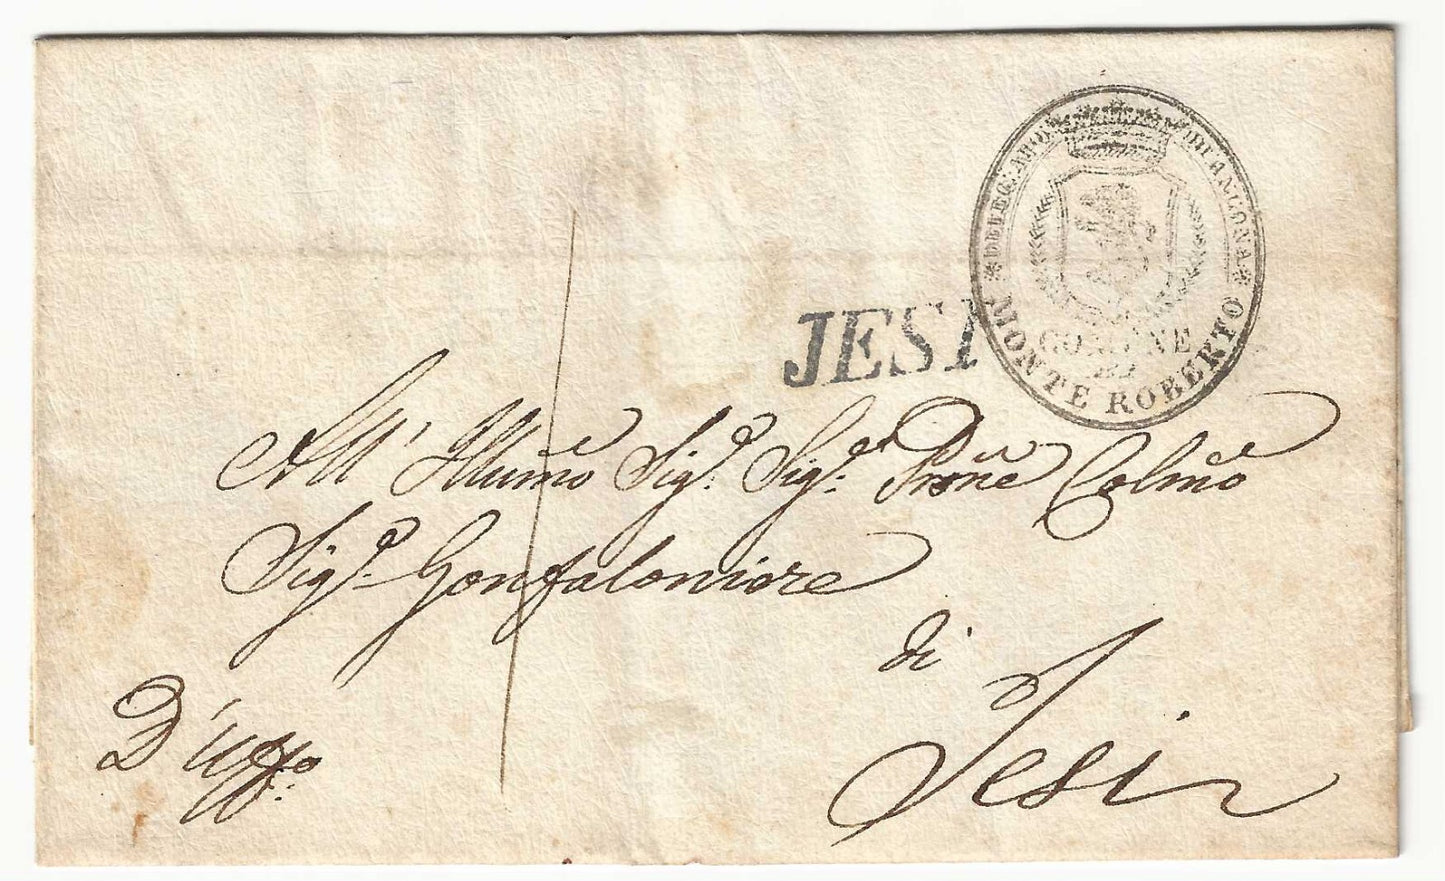 DELEG. APO. DI ANCONA
COMUNE
DI
MONTE ROBERTO
JESI
All' Illmo Sigr. Sigr. Prone Colmo
Sigr. Gonfaloniere
di
Jesi
D'uffo.